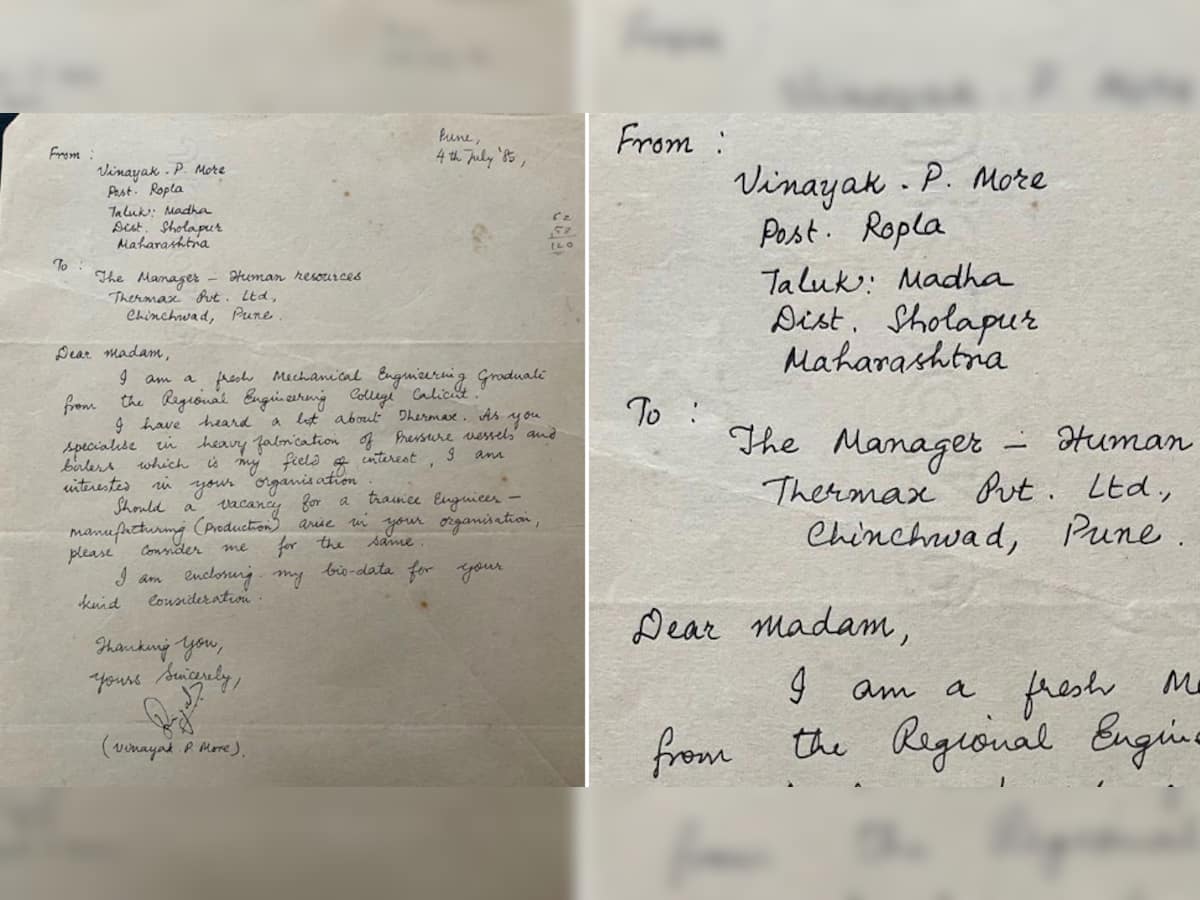 Pune,
4th July '85,
From :
Vinayak . P. More
Post. Ropla
Taluk: Madha
Dist. Sholapur
Maharashtra
62
58
120
To :
The Manager – Human resources
Thermax Pvt. Ltd.,
Chinchwad, Pune.
Dear Madam,
I am a fresh Mechanical Engineering Graduate
from the Regional Engineering College Calicut.
I have heard a lot about Thermax. As you
specialise in heavy fabrication of Pressure vessels and
boilers which is my field of interest, I am
interested in your organisation.
Should a vacancy for a trainee Engineer –
manufacturing (Production) arise in your organisation,
please consider me for the same.
I am enclosing my bio-data for your
kind consideration.
Thanking You,
Yours Sincerely,
(Vinayak P. More).
From :
Vinayak . P. More
Post. Ropla
Taluk: Madha
Dist. Sholapur
Maharashtra
To :
The Manager – Human
Thermax Pvt. Ltd.,
Chinchwad, Pune.
Dear Madam,
I am a fresh Me
from the Regional Engine